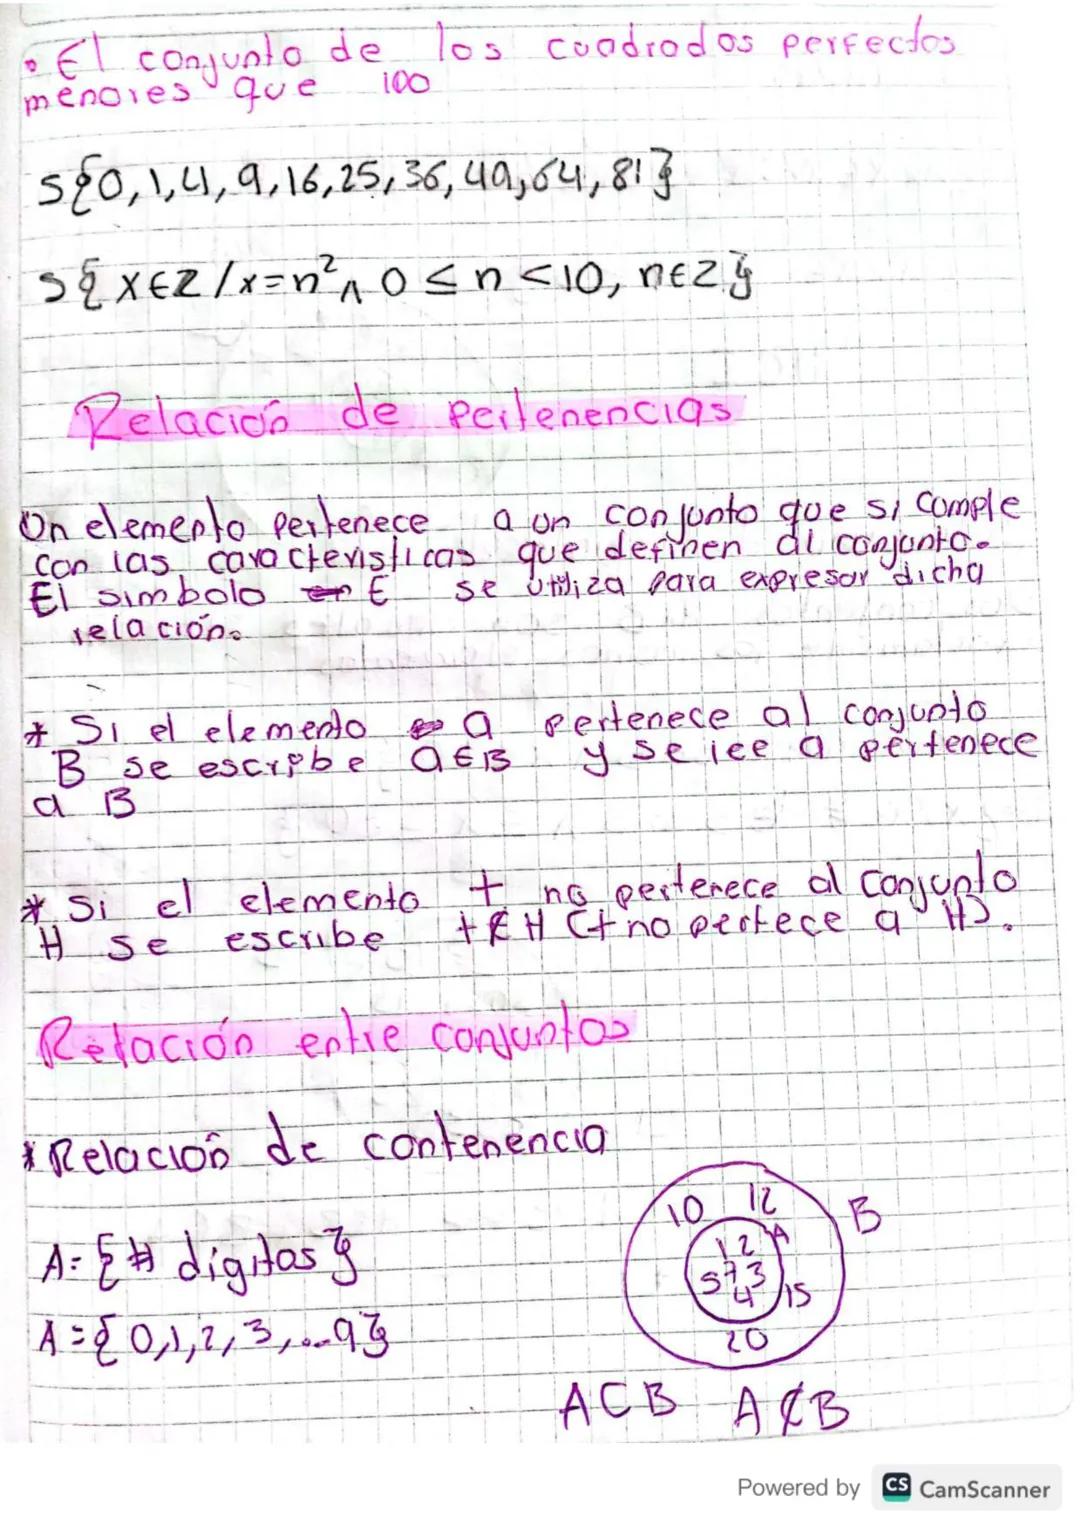 • El conjunto de los cuadrados perfectos
menores que 100
S{0,1,4,9,16,25,36,49,64,81}
S{x∈Z/x=n²∧0≤n<10, n∈Z}
Relación de pertenencias
Un elemento pertenece a un conjunto que si cumple
con las características que definen al conjunto.
El simbolo ∈ se utiliza para expresar dicha
relación.
* Si el elemento a pertenece al conjunto
B se escribe a∈B y se lee a pertenece
a B
* Si el elemento t no pertenece al conjunto
H se escribe t∉H (t no pertece a H).
Relación entre conjuntos
* Relación de contenencia
A={# digitos}
A={0,1,2,3,...9}
10 12 B
1 2 A
5 7 3
4 15
20
A⊂B A⊄B
Powered by CS CamScanner